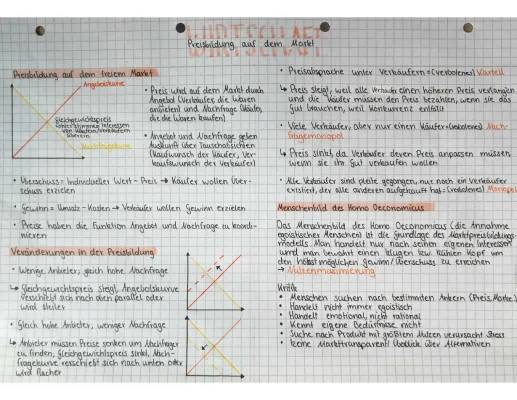 WIRTSCHAFT
Preisbildung auf dem Markt
Preisbildung auf dem freiem Markt
Angebotskurve
Gleichgewichtspreis
von Käufern/Verkäufern
Nachfragekurve
• Preis wird auf dem Markt durch
Angebot (Verkäufer, die Waren
anbieten) und Nachfrage (Käufer,
die die Waren kaufen)
• Angebot und Nachfrage geben
Auskunft über Tauschabsichten
(Kaufwunsch der Käufer, Ver-
kaufswunsch der Verkäufer)
• Überschuss = individueller Wert - Preis → Käufer wollen Über-
schuss erzielen
• Gewinn = Umsatz - Kosten → Verkäufer wollen Gewinn erzielen
• Preise haben die Funktion Angebot und Nachfrage zu koordi-
nieren
Veränderungen in der Preisbildung
• Wenige Anbieter, gleich hohe Nachfrage
↳ Gleichgewichtspreis steigt, Angebotskurve
verschiebt sich nach oben parallel oder
wird steiler
• Gleich hohe Anbieter, weniger Nachfrage
↳ Anbieter müssen Preise senken um Nachfrager
zu finden, Gleichgewichtspreis sinkt, Nach-
fragekurve verschiebt sich nach unten oder
wird flacher
• Preisabsprache unter Verkäufern = (verbotenes) Kartell
↳ Preis steigt, weil alle Verkäufer einen höheren Preis verlangen
und die Käufer müssen den Preis bezahlen, wenn sie das
Gut brauchen, weil Konkurrenz entfällt
• Viele Verkäufer, aber nur einen Käufer = (verbotenes) Nach-
fragemonopol
↳ Preis sinkt, da Verkäufer deren Preis anpassen müssen,
wenn sie ihr Gut verkaufen wollen
• Alle Verkäufer sind pleite gegangen, nur noch ein Verkäufer
existiert, der alle anderen aufgekauft hat = (verbotenes) Monopol
Menschenbild des Homo Oeconomicus
Das Menschenbild des Homo Oeconomicus (die Annahme
egoistisches Menschen) ist die Grundlage des Marktpreisbildungs-
modells. Man handelt nur nach seinen eigenen Interessen
und man bewahrt einen klugen bzw. kühlen Kopf um
den höchst möglichen Gewinn/Überschuss zu erreichen
→ Nutzenmaximierung
Kritik
• Menschen suchen nach bestimmten Ankern (Preis, Marke)
• Handelt nicht immer egoistisch
• Handelt emotional, nicht rational
• Kennt eigene Bedürfnisse nicht
• Suche nach Produkt mit größtem Nutzen verursacht Stress
• keine Markttransparenz/Überblick über Alternativen